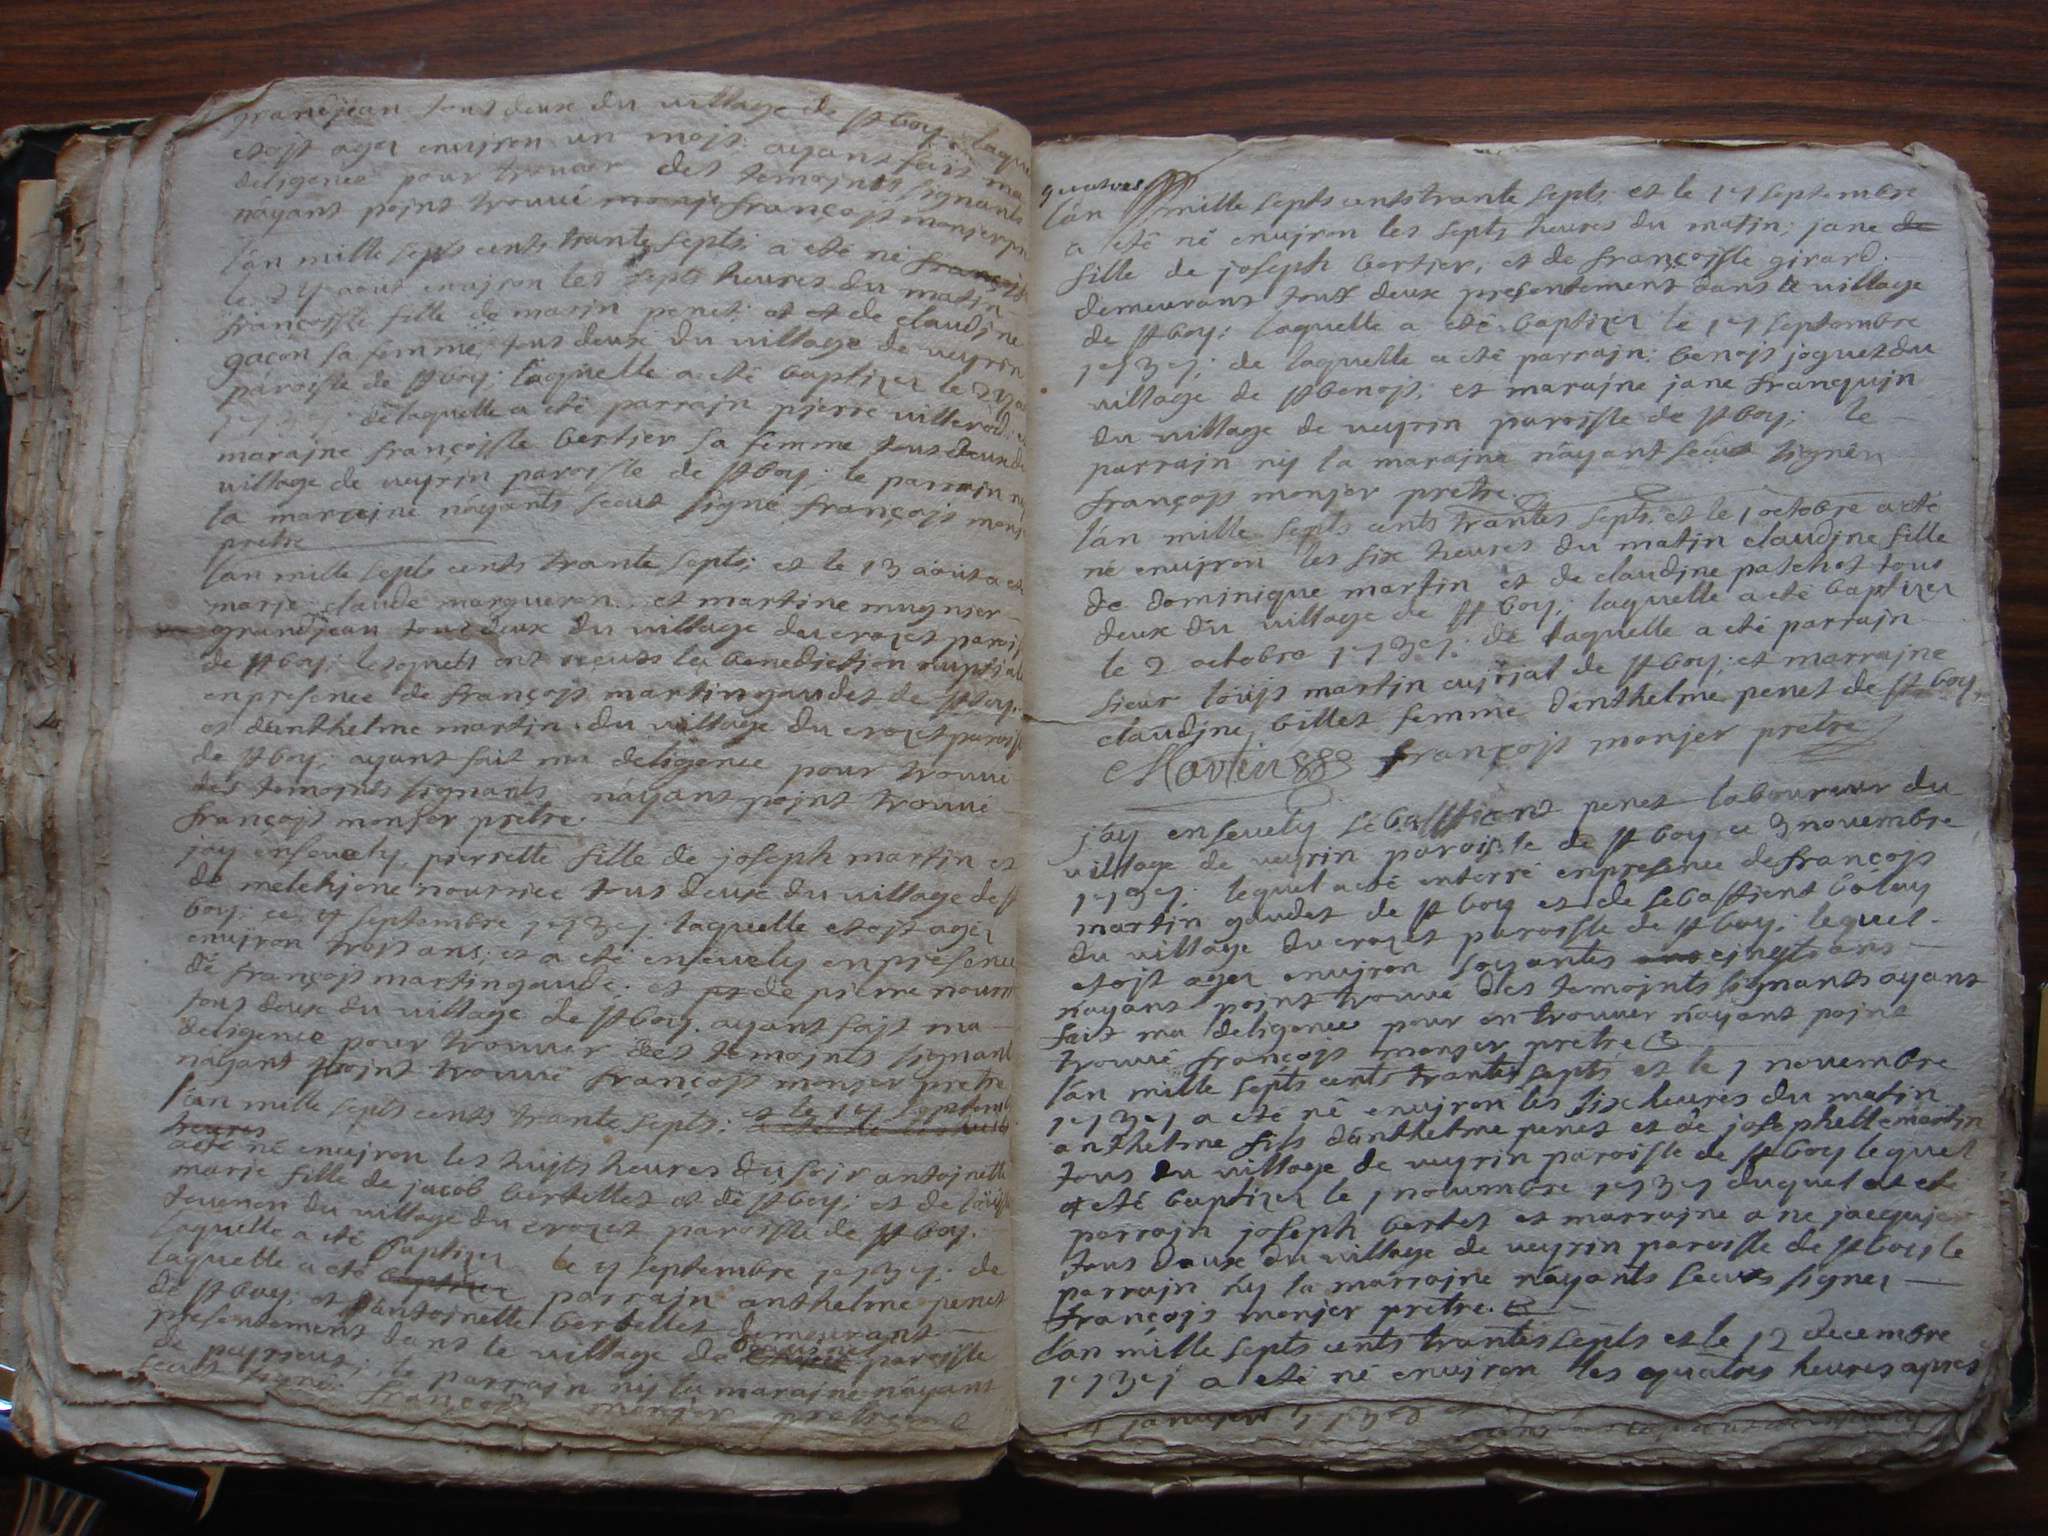 grandjean tous deux du village de St boy; laquelle
etoit agez enuiron un mojs; ayant fait ma
deligence pour trouuer des temojnts signants
náyant point trouué françojs monjer
lán mille septs cents trante septs; a eté né
le aout enuiron les septs heures du matin
françoisse fille de marin penet et de claudjne
gacon sa femme, tous deux du village de veyrin
paroisse de St boy; laquelle a eté baptizez le
de laquelle a eté parrajn pjerre villerod
marajne françoisse bertier sa femme tous deux du
village de veyrin paroisse de St boy; le parrajn ny
la marajne náyants sceut signé françojs monjer
pretre
lan mille septs cents trante septs; et le 13 aout a eté
marje claude margueron et martine mugnier
grandjean tous deux du village du crozet paroisse
de St boy; lesquels ont receus la benedictjon nuptiale
en presence de françojs martin gaudet de St boy
et dánthelme martin du village du crozet paroisse
de St boy; ayant fait ma deligence pour trouué
des temojnts signants náyant point trouué
françojs monjer pretre
jáy enseuely pierrette fille de joseph martin et
de melchjone nourrice tous deux du village de St
boy; ce septembre 1737 laquelle etoit agez
enuiron trojs ans; et a eté enseuely en présence
de françojs martin gaude; et de pierre nourri
tous deux du village de St boy. ayant fajt ma
deligence pour trouuer des temojnts signant
náyant point trouué françojs monjer pretre
lán mille septs cents trante septs; et le septembre
heures
a eté né enuiron les hujts heures du sojr antoinette
marje fille de jacob berbettes et de St boy; et de
teuenon du village du crozet paroisse de St boy.
laquelle a eté baptizez le septembre 1737; de
laquelle a eté baptizez parrajn anthelme penet
de St boy; et antojnette berbettes demeurant
presentement dans le village de paroisse
de le parrajn ny la marajne náyant
sceut signé françojs monjer pretre
quatres
lán mille septs cents trante septs et le 17 septembre
a eté né enuiron les septs heures du matin; jane de
fille de joseph bertier, et de françoisse girard
demeurans tous deux presentement dans le village
de St boy; laquelle a eté baptizez le 17 septembre
1737; de laquelle a eté parrajn; benojs joguet du
village de St benojt; et marajne jane franquin
du village de veyrin paroisse de St boy; le
parrajn ny la marajne náyant sceut signén
françojs monjer pretre.
lán mille septs cents trantes septs et le 1 octobre a eté
né enuiron les six heures du matin claudjne fille
de dominique martin et de claudjne patchot tous
deux du village de St boy; laquelle a eté baptizez
le 2 octobre 1737; de laquelle a eté parrajn
sieur loujs martin curial de St boy; et marrajne
claudjne billet femme dánthelme penet de St boy
Martin françojs monjer pretre
jáy enseuely sébasttient penet laboureur du
village de veyrin paroisse de St boy ce 3 novembre
1737; lequel a eté enterré en presence de françojs
martin gaudet de St boy et de sebastient bólay
du village du crozet paroisse de St boy; lequel
etojt agez enuiron soyantes cinqts ans
náyant point trouué des temojnts signants ayant
fait ma deligence pour en trouuer náyant point
trouué françojs monjer pretre
lán mille septs cents trantes septs et le 1 nouembre
1737 a eté né enuiron les six heures du matin
anthelme fils dánthelme penet et de josephelle martin
tous du village de veyrin paroisse de St boy lequel
a eté baptizez le 1 nouembre 1737 duquel at eté
parrajn joseph bertet et marrajne ane jacqujer
tous deux du village de veyrin paroisse de St boy; le
parrajn ny la marrajne náyants sceuts signez
françojs monjer pretre.
lán mille septs cents trantes septs et le 12 decembre
1737 a eté né enuiron les quatres heures apres